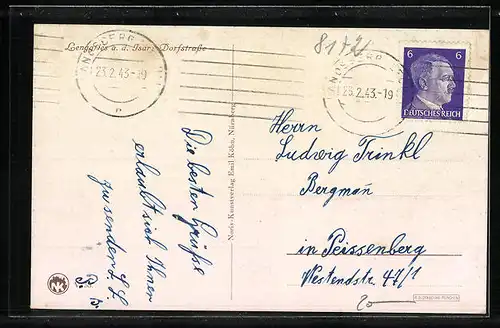 Lenggries a. d. Isar: Dorfstraße
8172
LANDSBERG
23.2.43.-19
LANDSBERG
23.2.43.-19
6 6
DEUTSCHES REICH
Die besten Grüße
erlaubt sich Ihnen
zu senden L. L.
P. B.
Noris-Kunstverlag Emil Köhn, Nürnberg
Herrn
Ludwig Trinkl
Bergmañ
in Peissenberg
Westendstr. 47/1
20